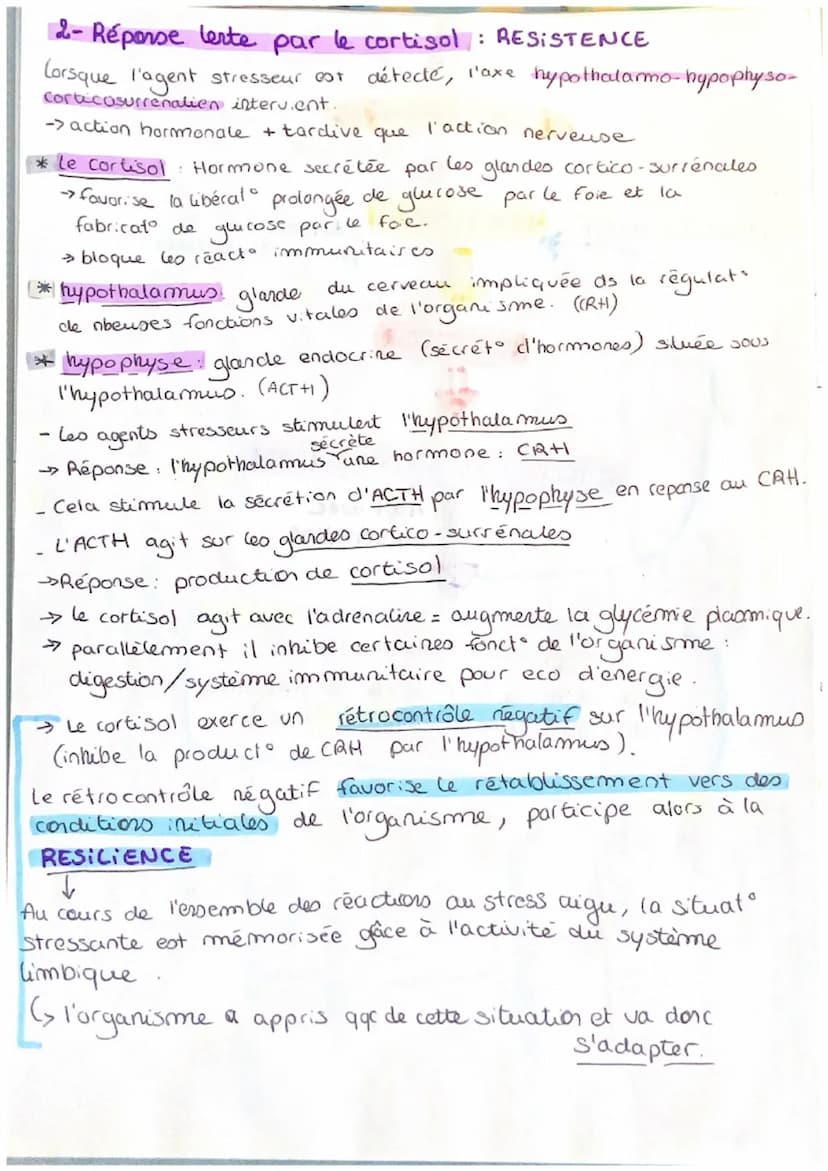 2- Réponse lente par le cortisol : RESISTENCE
Lorsque l'agent stresseur est détecté, l'axe hypothalamo-hypophyso-
corticosurrénalien intervient.
-> action hormonale + tardive que l'action nerveuse
* Le cortisol : Hormone secrétée par les glandes cortico-surrénales
-> favorise la libérat° prolongée de glucose par le foie et la
fabricat° de glucose par le foie.
-> bloque les réact° immunitaires
* hypothalamus: glande du cerveau impliquée ds la régulat°
de nbeuses fonctions vitales de l'organisme. (CRH)
* hypophyse : glande endocrine (sécrét° d'hormones) située sous
l'hypothalamus. (ACTH)
- Les agents stresseurs stimulent l'hypothalamus
-> Réponse : l'hypothalamus sécrète une hormone : CRH
- Cela stimule la sécrétion d'ACTH par l'hypophyse en reponse au CRH.
- L'ACTH agit sur les glandes cortico-surrénales
-> Réponse : production de cortisol
-> le cortisol agit avec l'adrenaline = augmente la glycémie plasmique.
-> parallèlement il inhibe certaines fonct° de l'organisme :
digestion/système immunitaire pour eco d'énergie.
-> Le cortisol exerce un rétrocontrôle négatif sur l'hypothalamus
(inhibe la product° de CRH par l'hypothalamus).
Le rétrocontrôle négatif favorise le rétablissement vers des
conditions initiales de l'organisme, participe alors à la
RESILIENCE
↓
Au cours de l'ensemble des réactions au stress aigu, la situat°
stressante est mémorisée gâce à l'activité du système
limbique.
↳ l'organisme a appris qqc de cette situation et va donc
s'adapter.